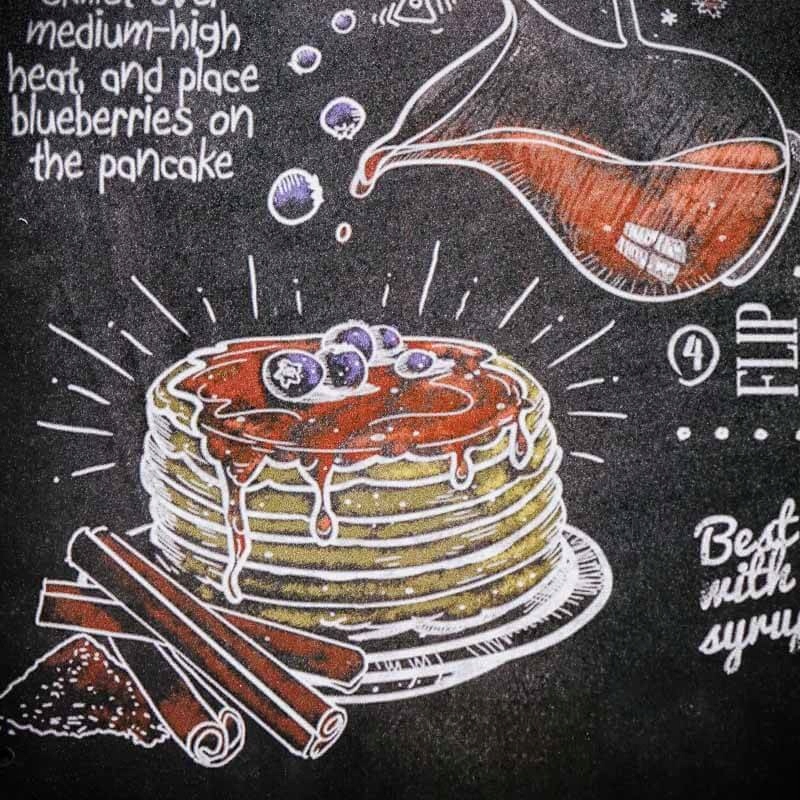 medium-high
heat, and place
blueberries on
the pancake
4
FLIP
Best
with